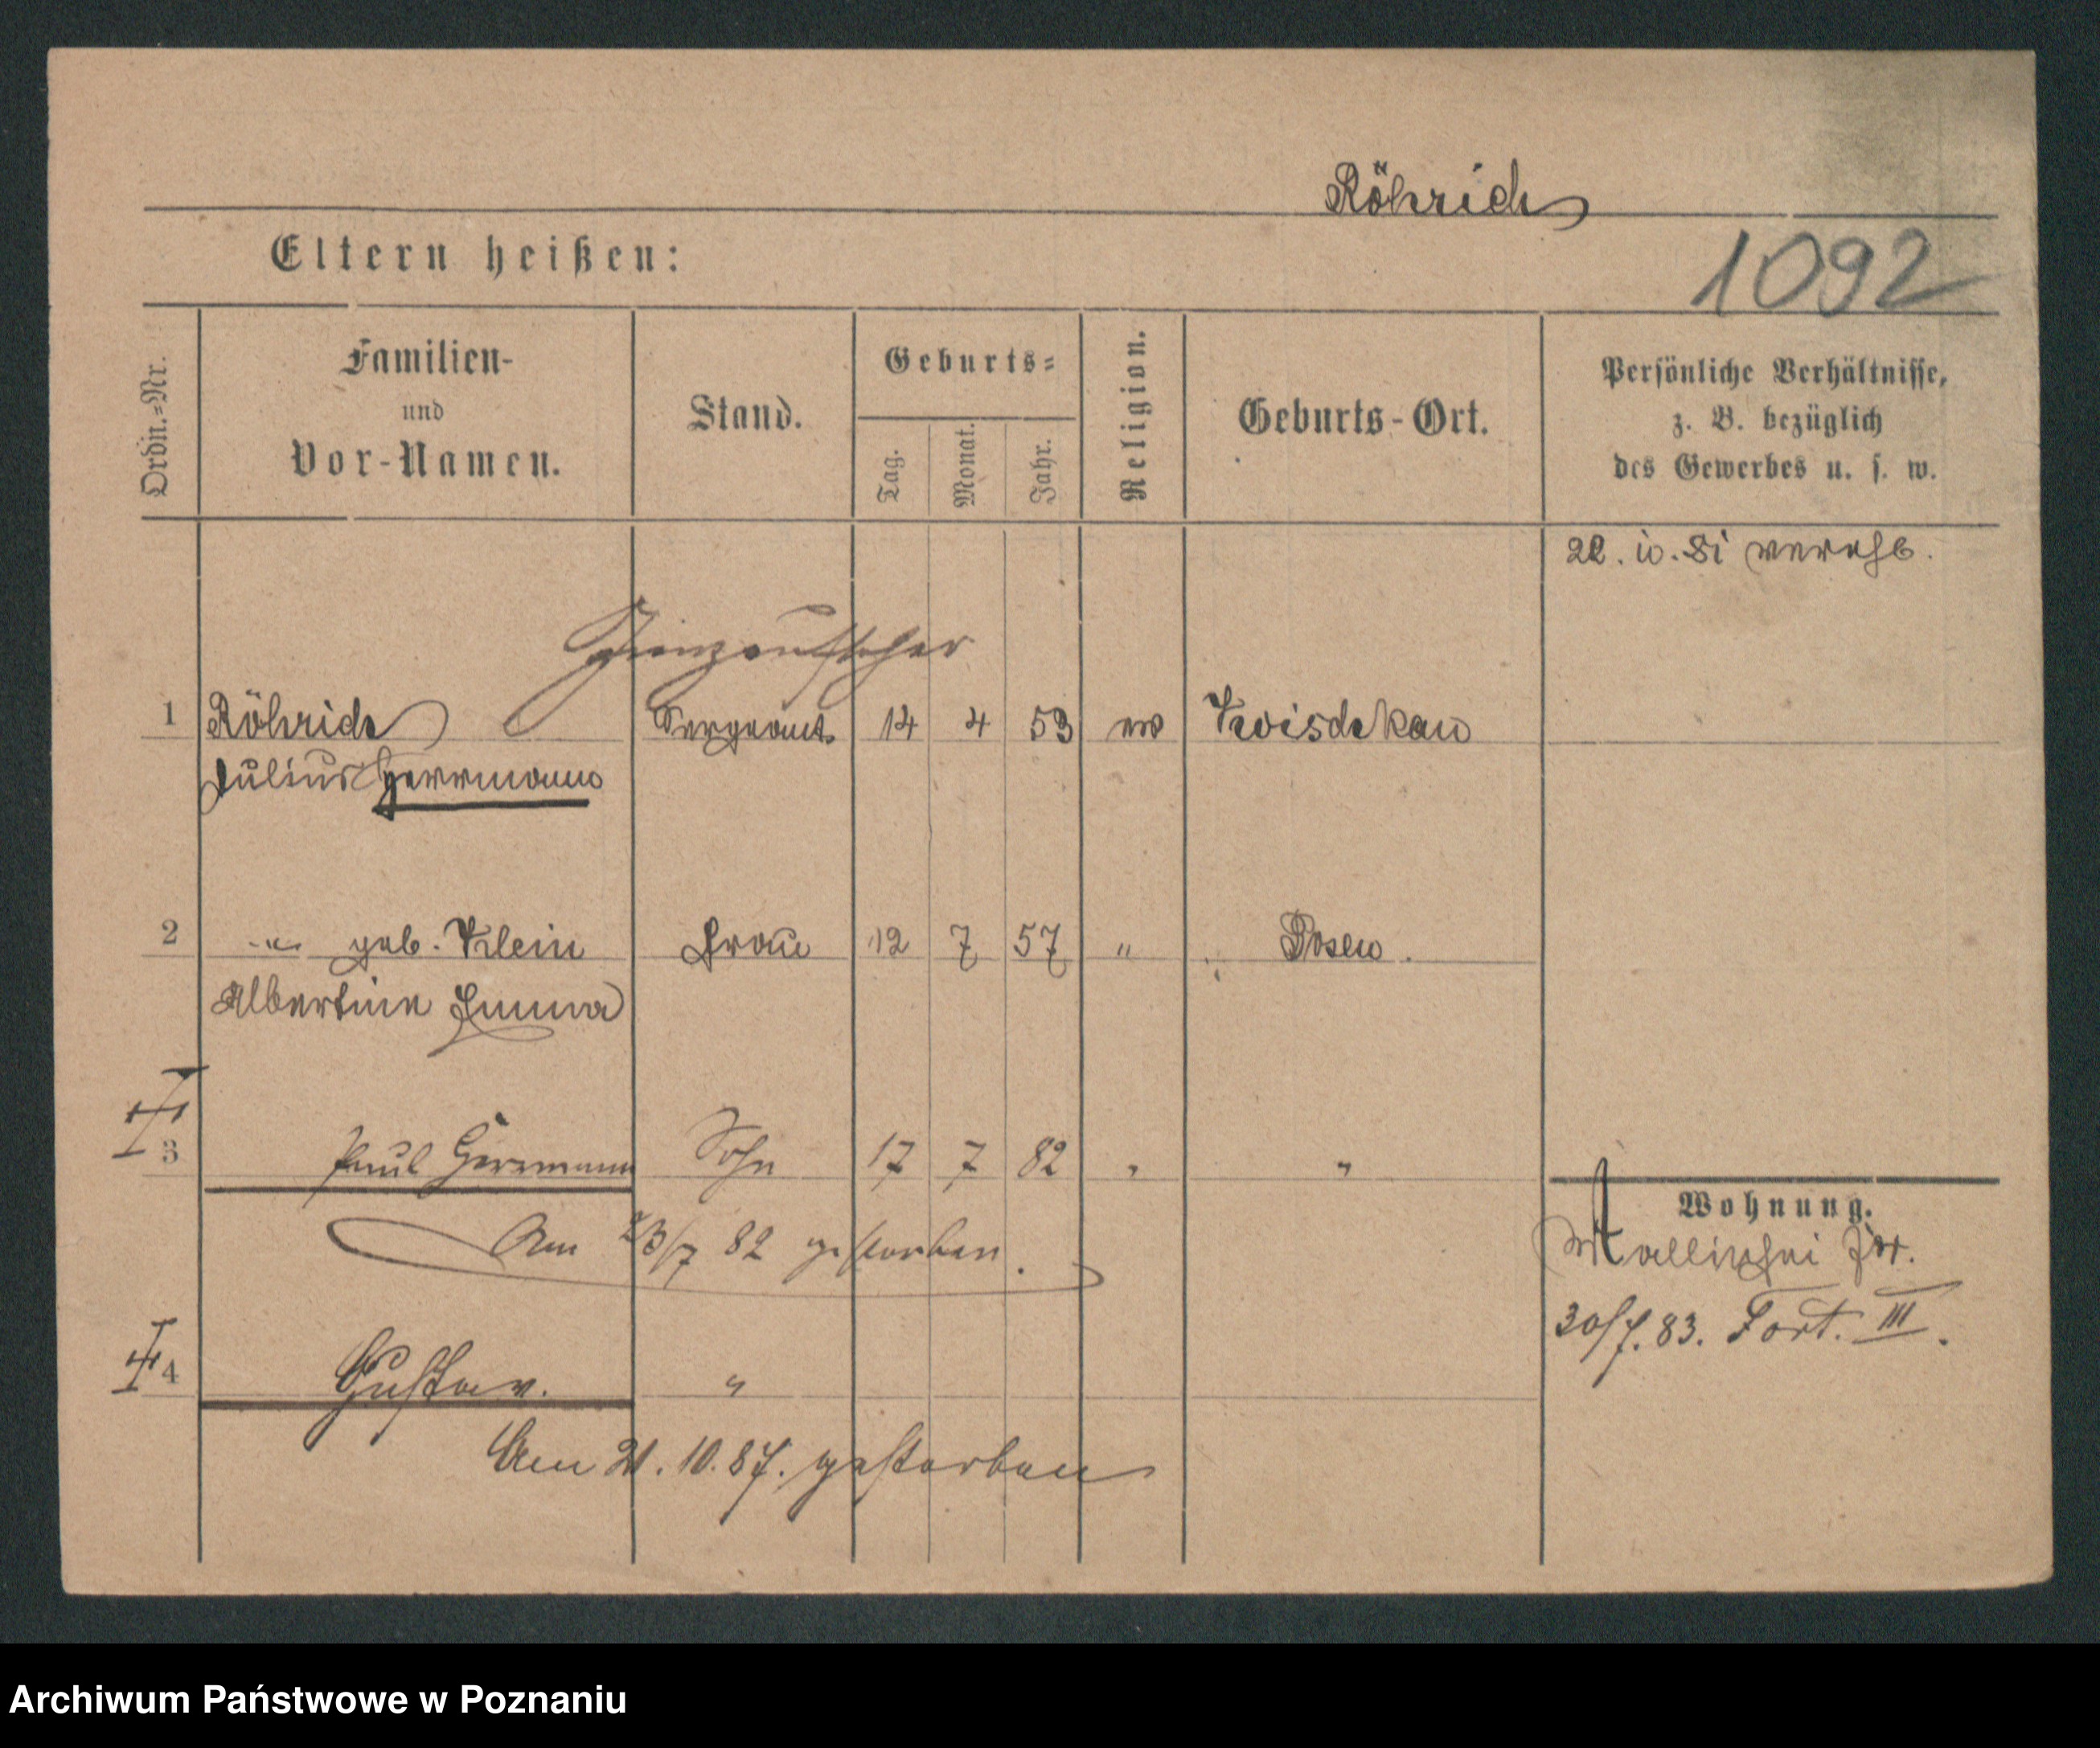 Röhrich
Eltern heißen:
1092
Ordn.=Nr.
Familien-
und
Vor-Namen.
Stand.
Geburts=
Tag.
Monat.
Jahr.
Religion.
Geburts-Ort.
Persönliche Verhältnisse,
z. B. bezüglich
des Gewerbes u. s. w.
22. 10. 81 vereh
1 Röhrich Sergeant 14 4 53 ev
Julius Herrmann
2 -"- geb. Klein Frau 12 7 57 " Posen.
Albertine Emma
3 Paul Herrmann Sohn 17 7 82 " "
Am 23/7 82 gestorben.
Wohnung.
30/7. 83. Fort. III.
4 Gustav. "
Am 21. 10. 87. gestorben
Archiwum Państwowe w Poznaniu